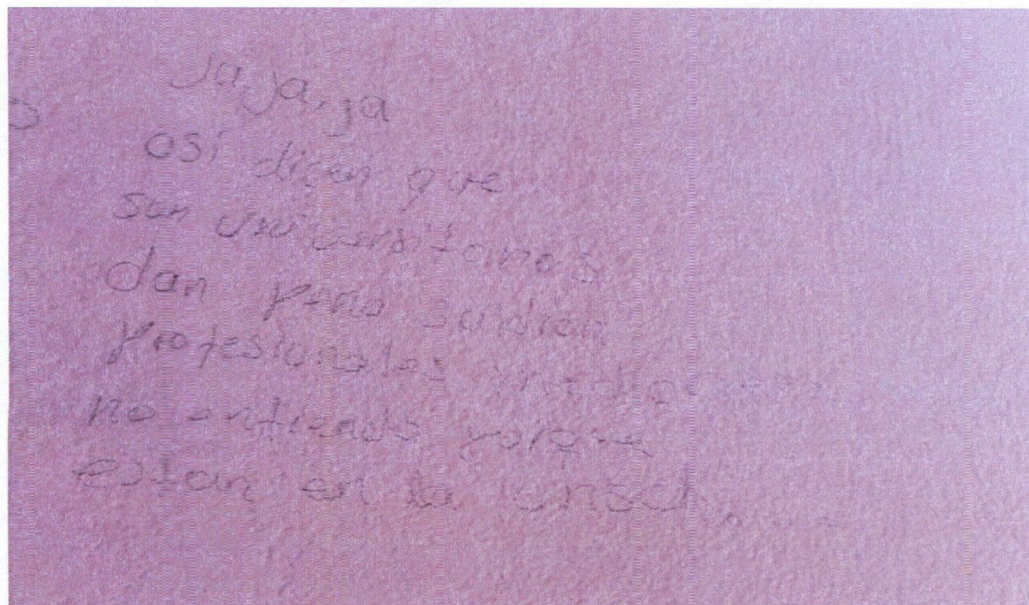 ja, ja, ja
osí dicen que
son universitarios
dan pena saldran
profesionales mediocres
no entiendo porque
estan en la UNSCH, ...